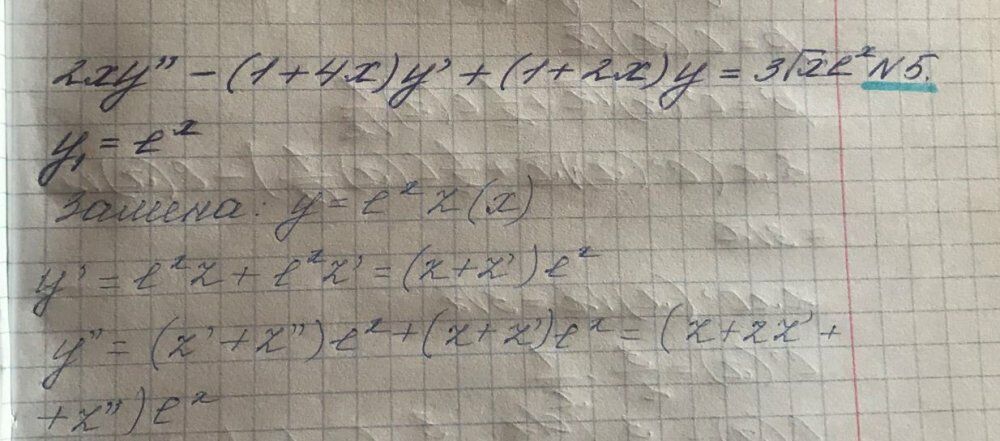 2xy'' - (1+4x)y' + (1+2x)y = 3√x e^x N5.
y₁ = e^x
Замена: y = e^x z(x)
y' = e^x z + e^x z' = (z+z')e^x
y'' = (z'+z'')e^x + (z+z')e^x = (z+2z'+
+z'')e^x